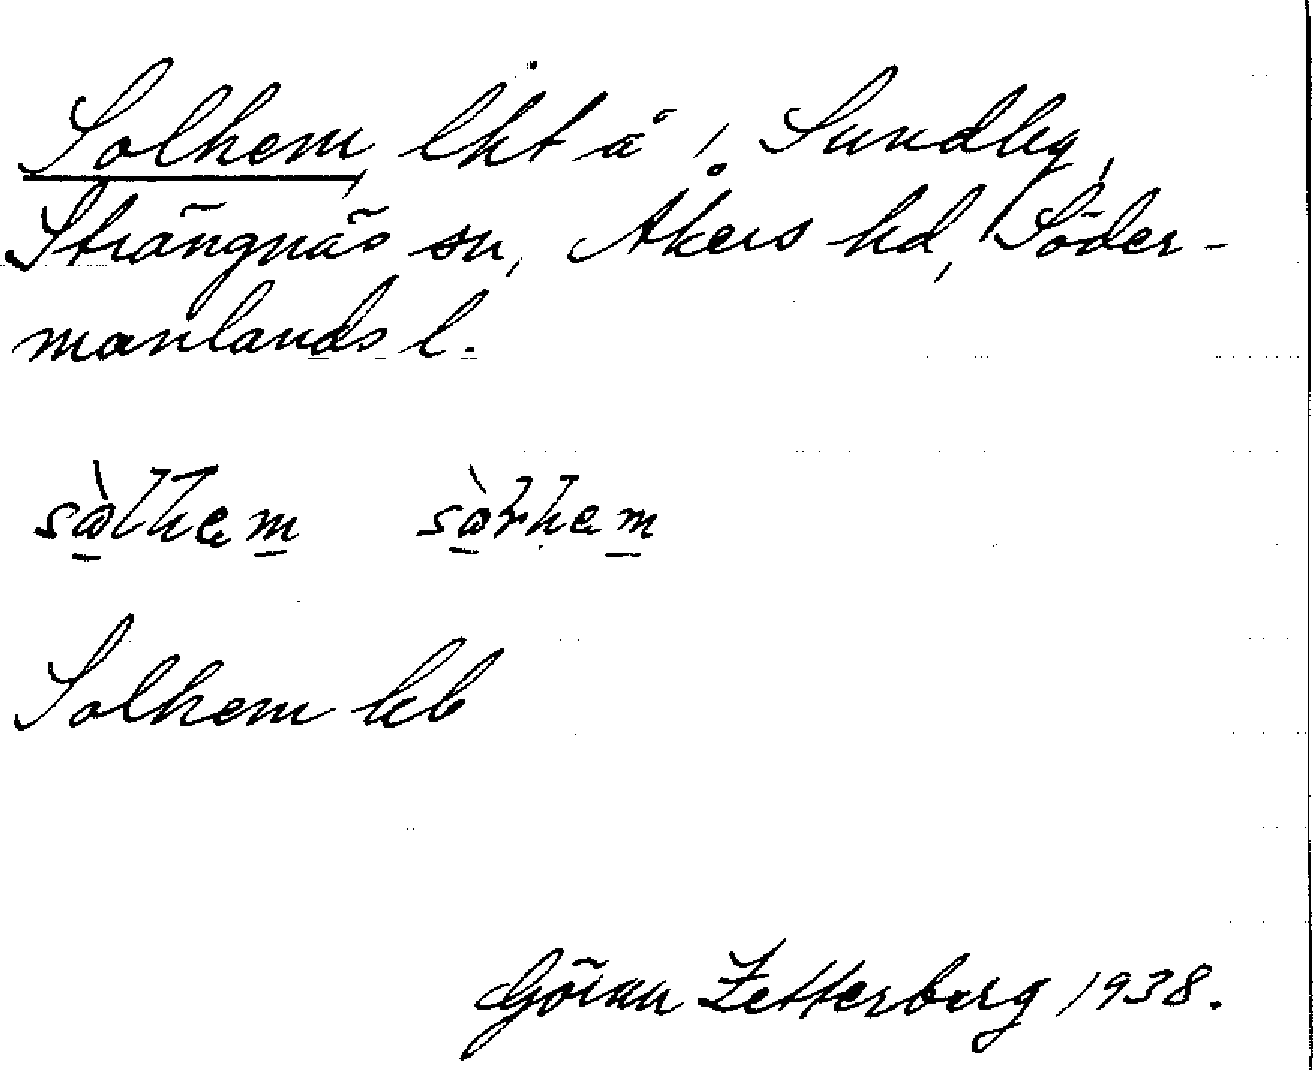 Solhem, lht å i Sundby,
Strängnäs sn, Åkers hd, Söder-
manlands l.
Solhem kb
Göran Zetterberg 1938.